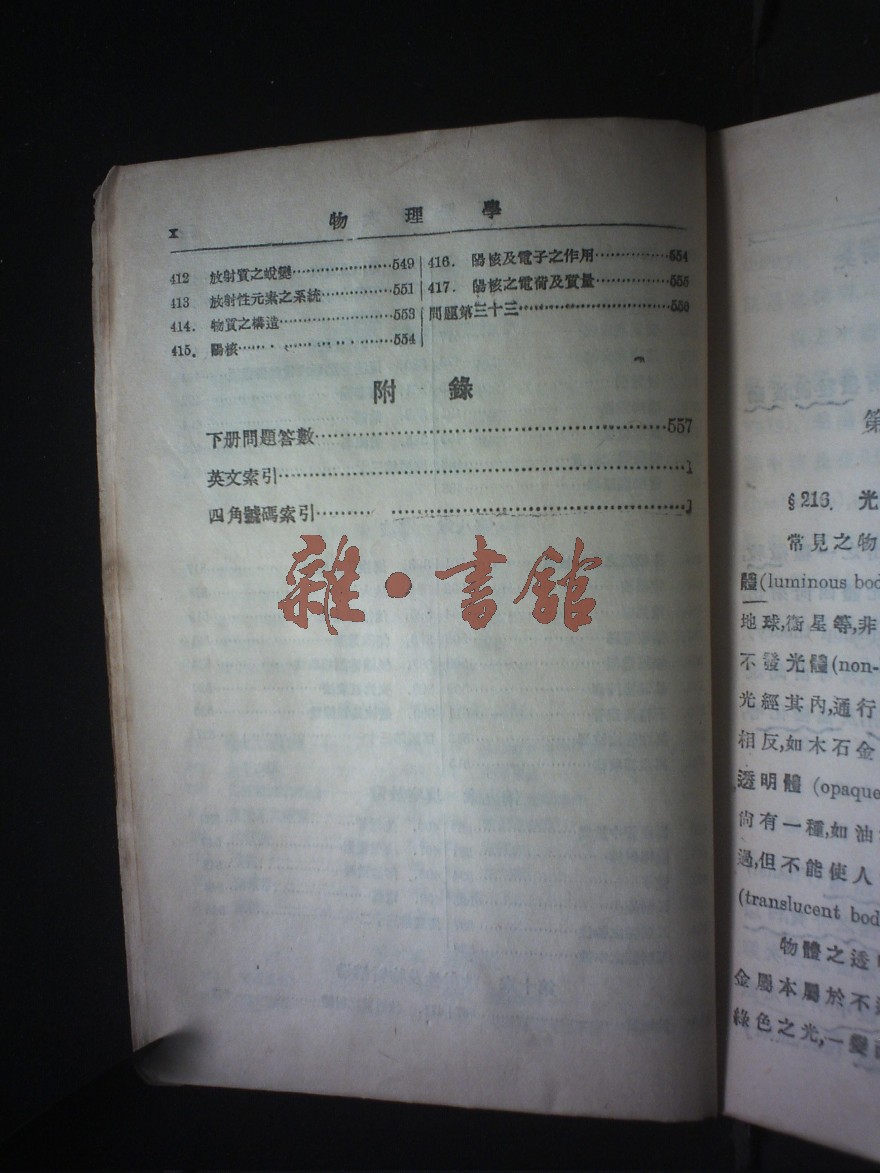 x 物理學
412 放射質之蛻變……………549
413 放射性元素之系統……………551
414. 物質之構造……………553
415. 陽核……………554
416. 陽核及電子之作用……………554
417. 陽核之電荷及質量……………555
問題第三十三……………556
附錄
下册問題答數……………557
英文索引……………1
四角號碼索引……………1
雜·書館
第
§216. 光
常見之物
體(luminous bod
地球,衞星等,非
不發光體(non-
光經其內,通行
相反,如木石金
透明體 (opaque
尙有一種,如油
過,但不能使人
(translucent bod
物體之透
金屬本屬於不
綠色之光,一變